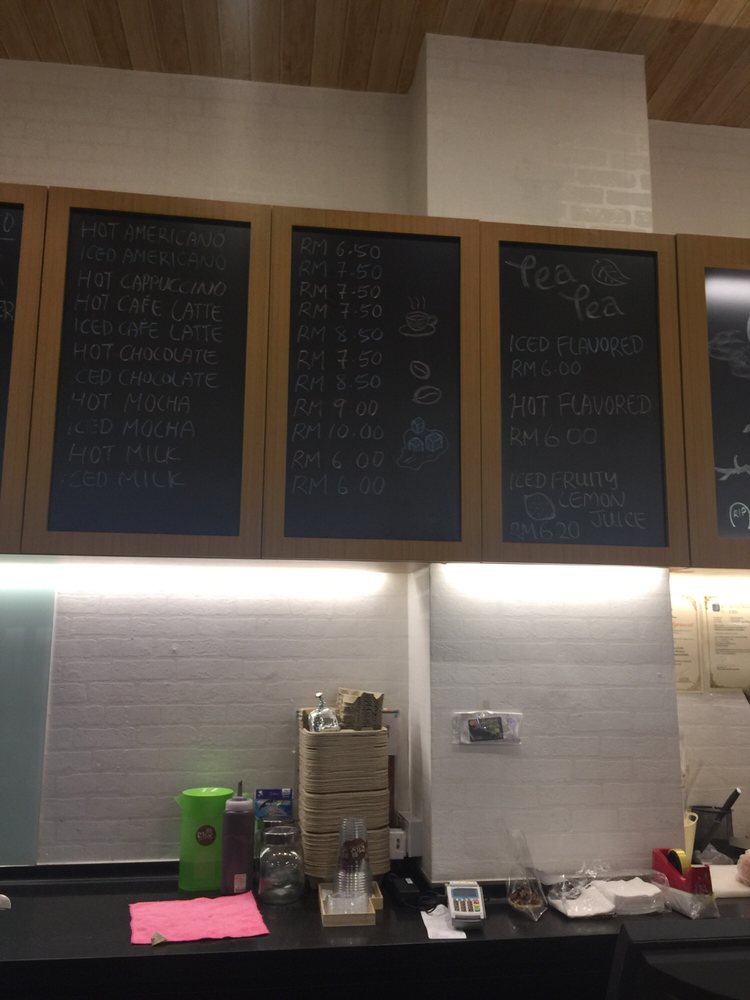 HOT AMERICANO
ICED AMERICANO
HOT CAPPUCCINO
HOT CAFE LATTE
ICED CAFE LATTE
HOT CHOCOLATE
ICED CHOCOLATE
HOT MOCHA
ICED MOCHA
HOT MILK
ICED MILK
RM 6.50
RM 7.50
RM 7.50
RM 7.50
RM 8.50
RM 7.50
RM 8.50
RM 9.00
RM 10.00
RM 6.00
RM 6.00
Tea
Tea
ICED FLAVORED
RM 6.00
HOT FLAVORED
RM 6.00
ICED FRUITY
LEMON
JUICE
RM 6.20
RIP